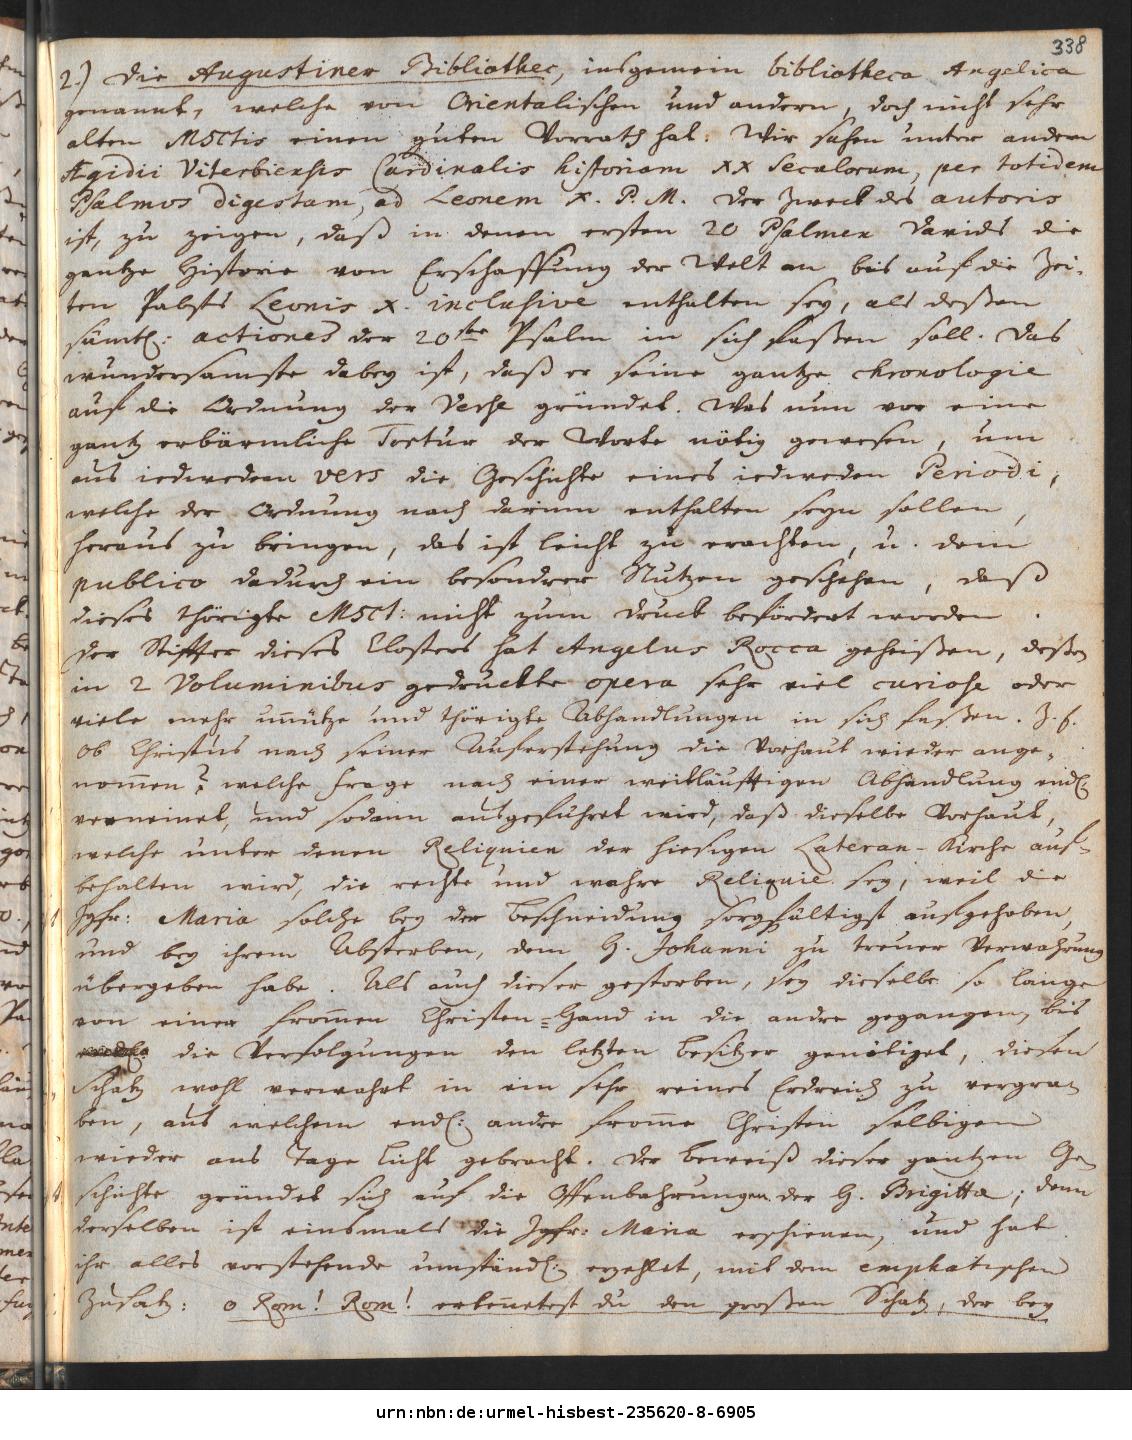 338
2.) Die Augustiner Bibliothec, insgemein bibliotheca Angelica
genannt, welche von Orientalischen und andern, doch nicht sehr
alten MSCtis einen guten Vorrath hat. Wir sahen unter andern
Ægidii Viterbiensis Cardinalis historiam XX Seculorum, per totidem
Psalmos digestam, ad Leonem X. P. M. Der Zweck des autoris
ist, zu zeigen, daß in denen ersten 20 Psalmen Davids die
gantze Historie von Erschaffung der Welt an bis auf die Zei-
ten Pabsts Leonis X inclusive enthalten sey, als deßen
sämtl: actiones der 20ste Psalm in sich faßen soll. Das
wundersamste dabey ist, daß er seine gantze chronologie
auf die Ordnung der Verse gründet. Was nun vor eine
gantz erbärmliche Tortur der Worte nötig gewesen, um
aus iedwedem vers die Geschichte eines iedweden Periodi,
welche der Ordnung nach darinn enthalten seyn sollen,
heraus zu bringen, das ist leicht zu erachten, u. dem
publico dadurch ein besondrer Nutzen geschehen, daß
dieses thörigte MSCt: nicht zum Druck befördert worden.
Der Stiffter dieses Closters hat Angelus Rocca geheißen, deßen
in 2 Voluminibus gedruckte opera sehr viel curiose oder
viele mehr unnütze und thörigte Abhandlungen in sich faßen. Z. E.
Ob Christus nach seiner Auferstehung die Vorhaut wieder ange-
nommen? welche Frage nach einer weitläufftigen Abhandlung endl:
verneinet, und sodann ausgeführet wird, daß dieselbe Vorhaut,
welche unter denen Reliquien der hiesigen Lateran-Kirche auf-
behalten wird, die rechte und wahre Reliquie sey, weil die
Jgfr: Maria solche bey der Beschneidung sorgfältigst aufgehoben,
und bey ihrem Absterben, dem H. Johanni zu treuer Verwahrung
übergeben habe. Als auch dieser gestorben, sey dieselbe so lange
von einer frommen Christen-Hand in die andre gegangen, bis
die Verfolgungen den letzten Besitzer genötiget, diesen
Schatz wohl verwahrt in ein sehr reines Erdreich zu vergra-
ben, aus welchem endl: andre fromme Christen selbigen
wieder ans Tage Licht gebracht. Der Beweiß dieser gantzen Ge-
schichte gründet sich auf die Offenbahrungen der H. Brigitta; denn
derselben ist einsmals die Jgfr: Maria erschienen, und hat
ihr alles vorstehende umständl: erzehlet, mit dem emphatischen
Zusatz: o Rom! Rom! erkennetest du den großen Schatz, der bey
urn:nbn:de:urmel-hisbest-235620-8-6905